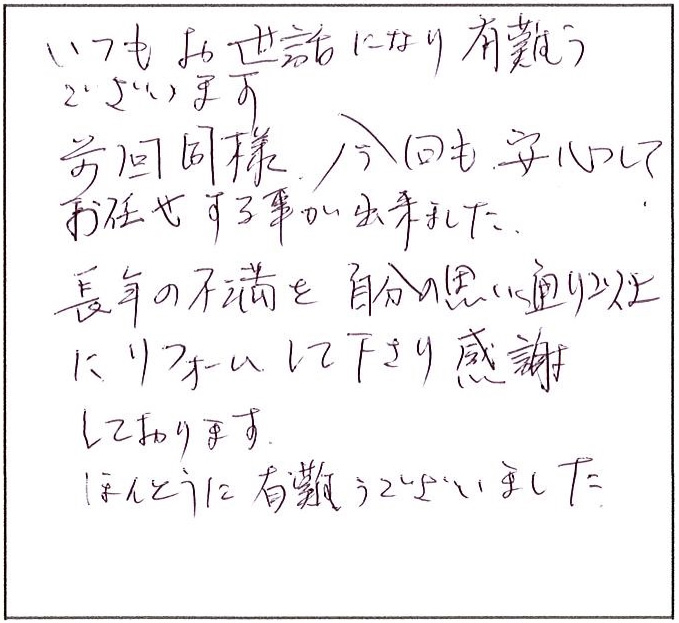 いつもお世話になり有難う
ございます
前回同様、今回も安心して
お任せする事が出来ました。
長年の不満を自分の思い通り以上
にリフォームして下さり感謝
しております。
ほんとうに有難うございました